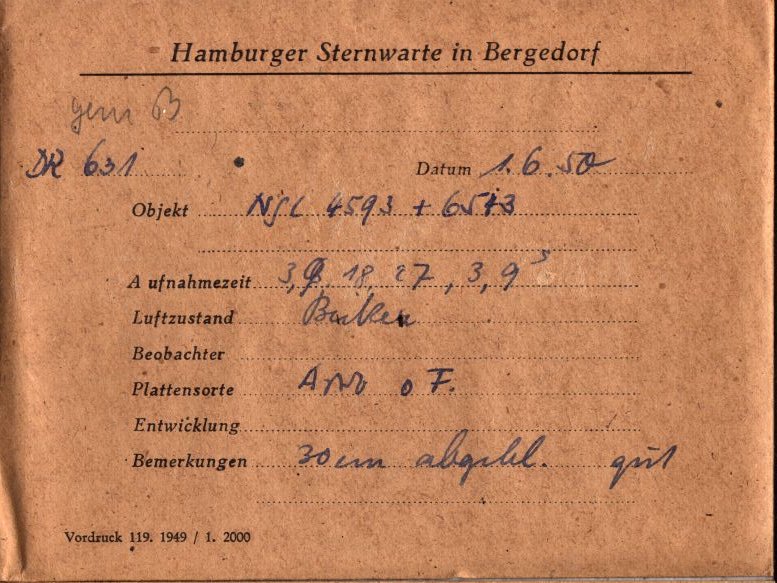 Hamburger Sternwarte in Bergedorf
gem B
DR 631 Datum 1.6.50
Objekt NGC 4593 + 6513
Aufnahmezeit 3, 9, 18, 27, 3, 9
Luftzustand
Beobachter
Plattensorte o F.
Entwicklung
Bemerkungen 30cm abgebl. gut
Vordruck 119. 1949 / 1. 2000